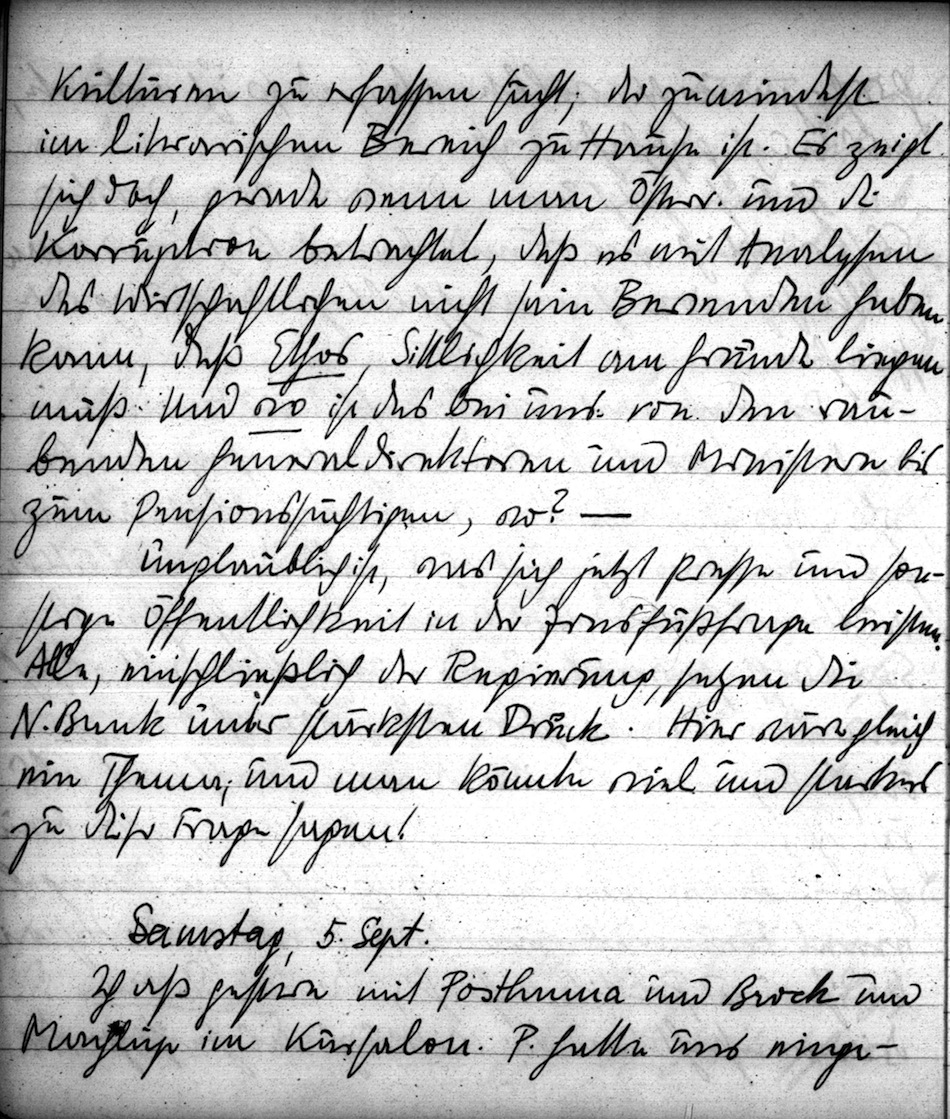 Kulturen zu erfassen sucht, der zumindest
im literarischen Bereich zu Hause ist. Es zeigt
sich doch, gerade wenn man Österr. und die
Korruption betrachtet, daß es mit Analysen
des Wirtschaftlichen nicht sein Bewenden haben
kann, daß Ethos, Sittlichkeit am Grunde liegen
muß. Und wo ist das bei uns von den rau-
benden Generaldirektoren und Ministern bis
zum Pensionssüchtigen, wo? —
Unglaublich ist, was sich jetzt Presse und son-
stige Öffentlichkeit in der Zinsfußfrage leisten.
Alle, einschließlich der Regierung, setzen die
N.Bank unter stärksten Druck. Hier wäre gleich
ein Thema; und man könnte viel und starkes
zu dieser Frage sagen!
Samstag, 5. Sept.
Ich aß gestern mit Posthuma und Brock und
Machlup im Kursalon. P. hatte uns einge-